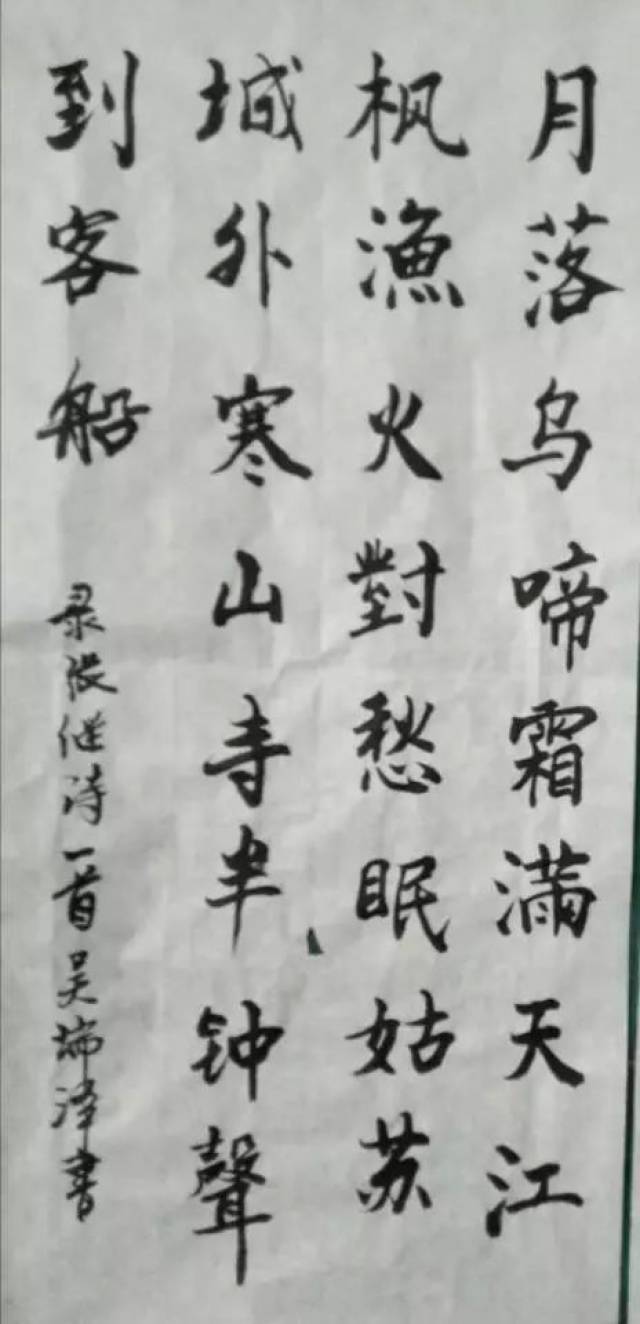 月落乌啼霜满天江
枫渔火對愁眠姑苏
城外寒山寺半钟聲
到客船
录张继诗一首吴瑞泽书